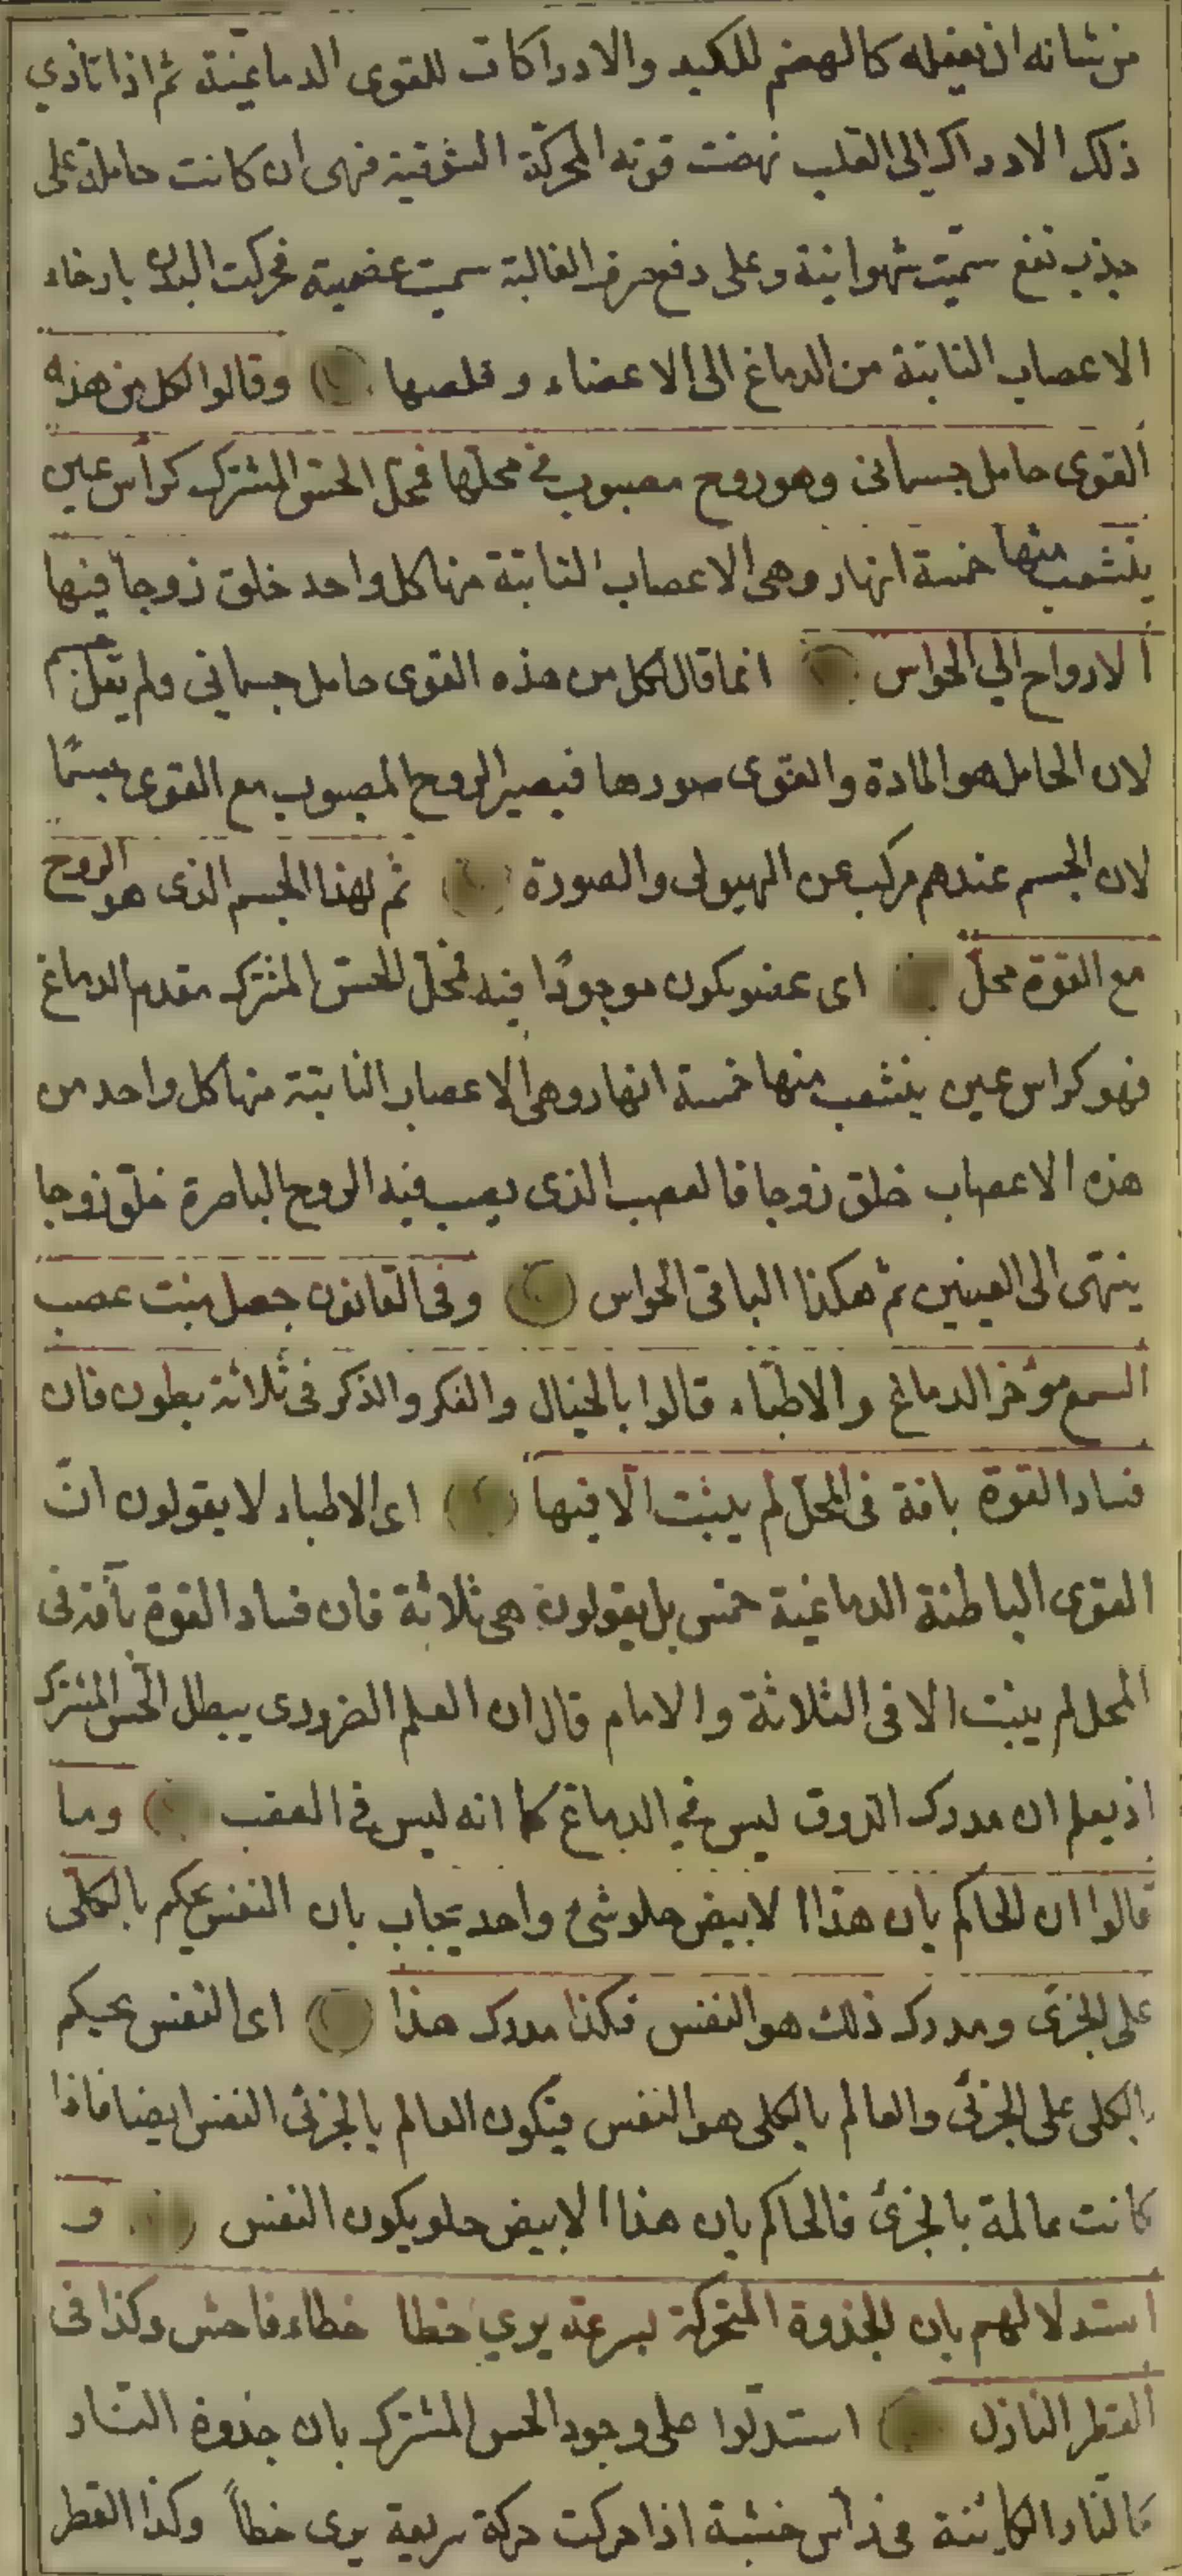 من شانه ان يفعله كالهضم للكبد والادراكات للقوى الدماغية ثم اذا تادي
ذلك الادراك الى القلب نهضت قوته المحركة الشوقية فهى ان كانت حاملة على
جذب نفع سميت شهوانية وعلى دفع ضر الغالبة سميت غضبية فحركت البدن بارخاء
الاعصاب النابتة من الدماغ الى الاعضاء وقلصها وقالوا لكل من هذه
القوى حامل جسمانى وهو روح مصبوب فى محلها فمحل الحس المشترك كرأس عين
ينشعب منها خمسة انهار وهى الاعصاب النابتة منها كل واحد خلق زوجا فيها
الارواح الي الحواس انما قال لكل من هذه القوى حامل جسماني ولم يقل جسم
لان الحامل هو المادة والقوى صورها فيصير الروح المصبوب مع القوى جسمًا
لان الجسم عندهم مركب عن الهيولى والصورة ثم لهذا الجسم الذى هو الروح
مع القوة محلّ اى عضو يكون موجودًا فيه فمحلّ للحس المشترك مقدم الدماغ
فهو كراس عين ينشعب منها خمسة انهار وهى الاعصاب النابتة منها كل واحد من
هذه الاعصاب خلق زوجا فالعصب الذى يصب فيه الروح الباصرة خلق زوجا
ينتهى الى العينين ثم هكذا الباقى الحواس وفى القانون جعل منبت عصب
السمع مؤخر الدماغ والاطباء قالوا بالخيال والفكر والذكر فى ثلاثة بطون فان
فساد القوة بافة فى المحل لم يثبت الّا فيها اى الاطباء لا يقولون انّ
القوى الباطنة الدماغية خمس بل يقولون هى ثلاثة فان فساد القوة بآفة فى
المحل لم يثبت الا فى الثلاثة والامام قال ان العلم الضرورى يبطل الحس المشترك
اذ يعلم ان مدرك الذوق ليس في الدماغ كما انه ليس فى العقب وما
قالوا ان الحاكم بان هذا الابيض حلو شئ واحد يجاب بان النفس يحكم بالكلى
على الجزئ ومدرك ذلك هو النفس فكذا مدرك هذا اى النفس يحكم
بالكلى على الجزئى والعالم بالكلى هو النفس فيكون العالم بالجزئى النفس ايضا فاذا
كانت عالمة بالجزئ فالحاكم بان هذا الابيض حلو يكون النفس و
استدلالهم بان الجذوة المتحركة بسرعة يري خطا خطاء فاحش وكذا فى
القطر النازل استدلّوا على وجود الحس المشترك بان جذوة النار
كالنار الكائنة فى رأس خشبة اذا حركت حركة سريعة يرى خطاً وكذا القطر